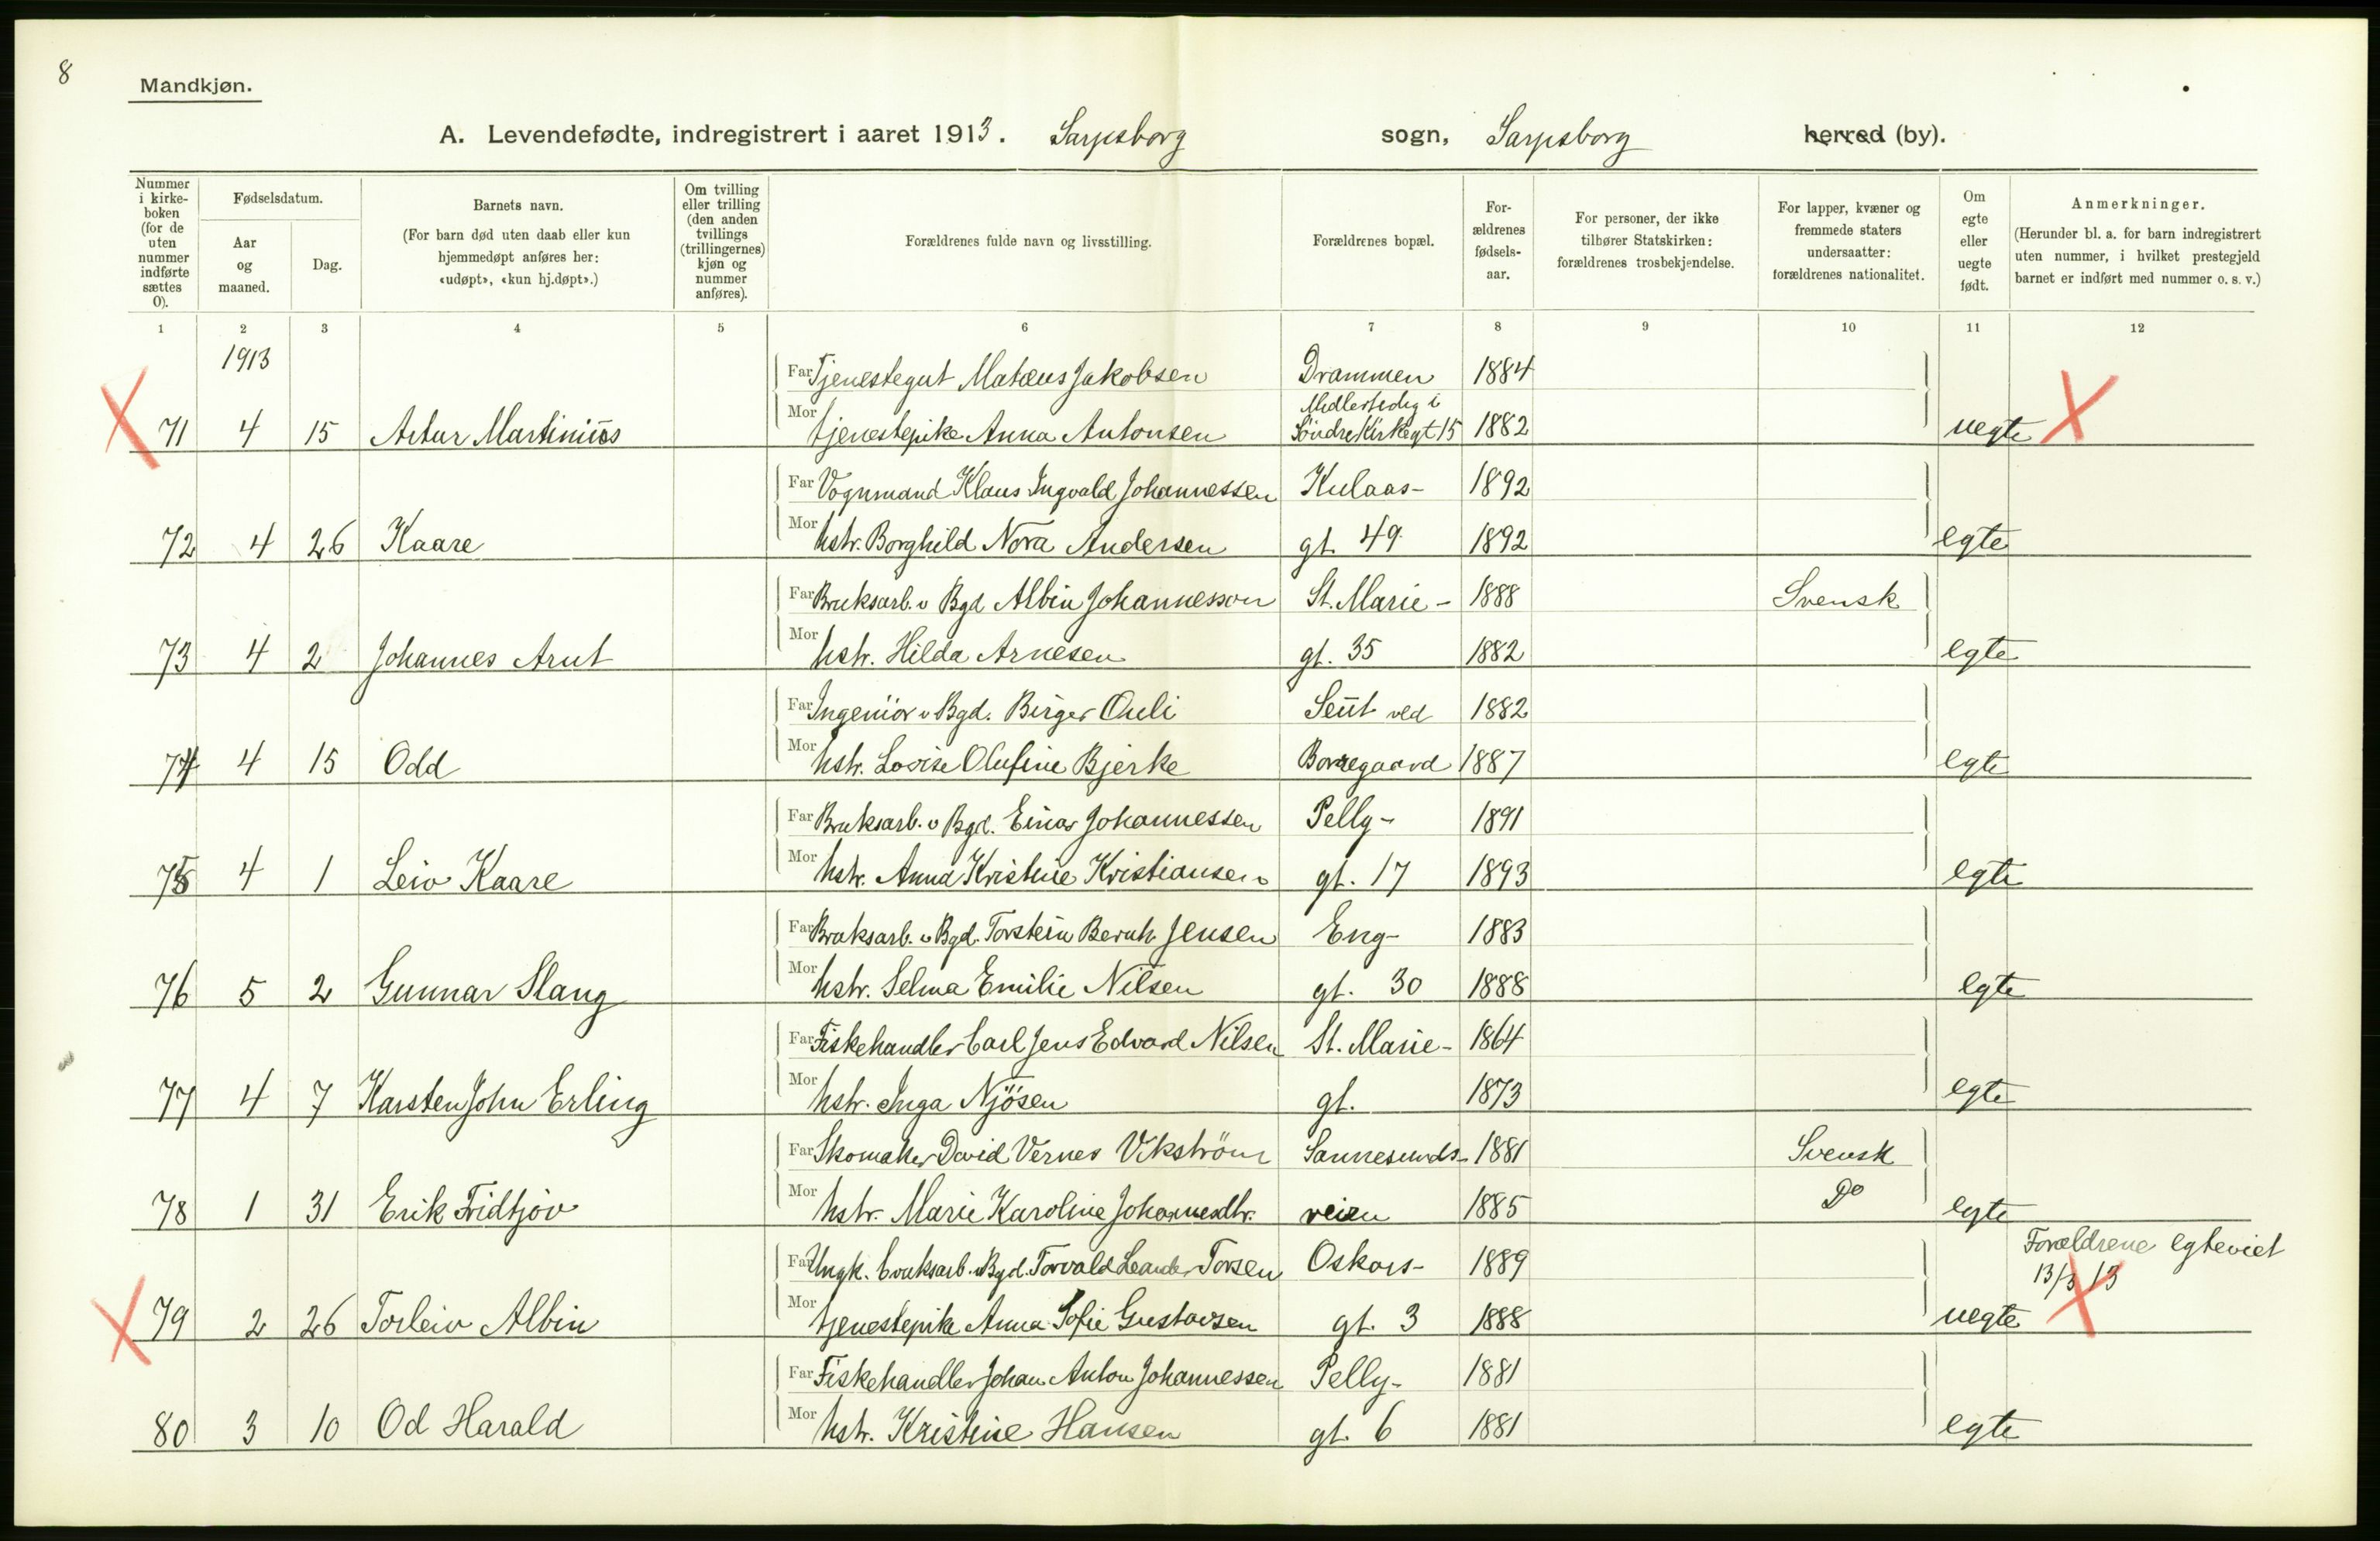 8
Mandkjøn.
A. Levendefødte, indregistrert i aaret 1913. Sarpsborg sogn, Sarpsborg herred (by).
Nummer i kirkeboken (for de uten nummer indførte sættes 0).
Fødselsdatum.
Aar og maaned.
Dag.
Barnets navn.
(For barn død uten daab eller kun hjemmedøpt anføres her: «udøpt», «kun hj.døpt».)
Om tvilling eller trilling (den anden tvillings (trillingernes) kjøn og nummer anføres).
Forældrenes fulde navn og livsstilling.
Forældrenes bopæl.
Forældrenes fødselsaar.
For personer, der ikke tilhører Statskirken: forældrenes trosbekjendelse.
For lapper, kvæner og fremmede staters undersaatter: forældrenes nationalitet.
Om egte eller uegte født.
Anmerkninger.
(Herunder bl. a. for barn indregistrert uten nummer, i hvilket prestegjeld barnet er indført med nummer o. s. v.)
1 2 3 4 5 6 7 8 9 10 11 12
1913
Far Tjenestegut Matæus Jakobsen Drammen 1884
Midlertidig i
71 4 15 Artur Martinius Mor tjenestepike Anna Antonsen Søndre Kirkegt 15 1882 uegte
Far Vognmand Klaus Ingvald Johannessen Kulaas- 1892
72 4 26 Kaare Mor hstr. Borghild Nora Andersen gt. 49. 1892 egte
Far Bruksarb. v Bgd Albin Johannesson St. Marie- 1888 Svensk
73 4 2 Johannes Arnt Mor hstr. Hilda Arnesen gt. 35 1882 egte
Far Ingeniör v Bgd. Birger Ouli Seut ved 1882
74 4 15 Odd Mor hstr. Lovise Olufine Bjerke Borregaard 1887 egte
Far Bruksarb. v Bgd. Einar Johannessen Pelly- 1891
75 4 1 Leiv Kaare Mor hstr. Anna Kristine Kristiansen gt. 17 1893 egte
Far Bruksarb. v Bgd. Torstein Bernh. Jensen Eng- 1883
76 5 2 Gunnar Slang Mor hstr. Selma Emilie Nilsen gt. 30 1888 egte
Far Fiskehandler Carl Jens Edvard Nilsen St. Marie- 1864
77 4 7 Karsten John Erling Mor hstr. Inga Njösen gt. 1873 egte
Far Skomaker David Verner Vikström Sannesunds- 1881 Svensk
78 1 31 Erik Fridtjov Mor hstr. Marie Karoline Johannesdtr. veien 1885 Do egte
Far Ungk. bruksarb. v Bgd. Torvald Leander Torsen Oskars- 1889 Forældrene egteviet
13/3 13
79 2 26 Torleiv Albin Mor tjenestepike Anna Sofie Gustavsen gt. 3 1888 uegte
Far Fiskehandler Johan Anton Johannessen Pelly- 1881
80 3 10 Od Harald Mor hstr. Kristine Hansen gt. 6 1881 egte